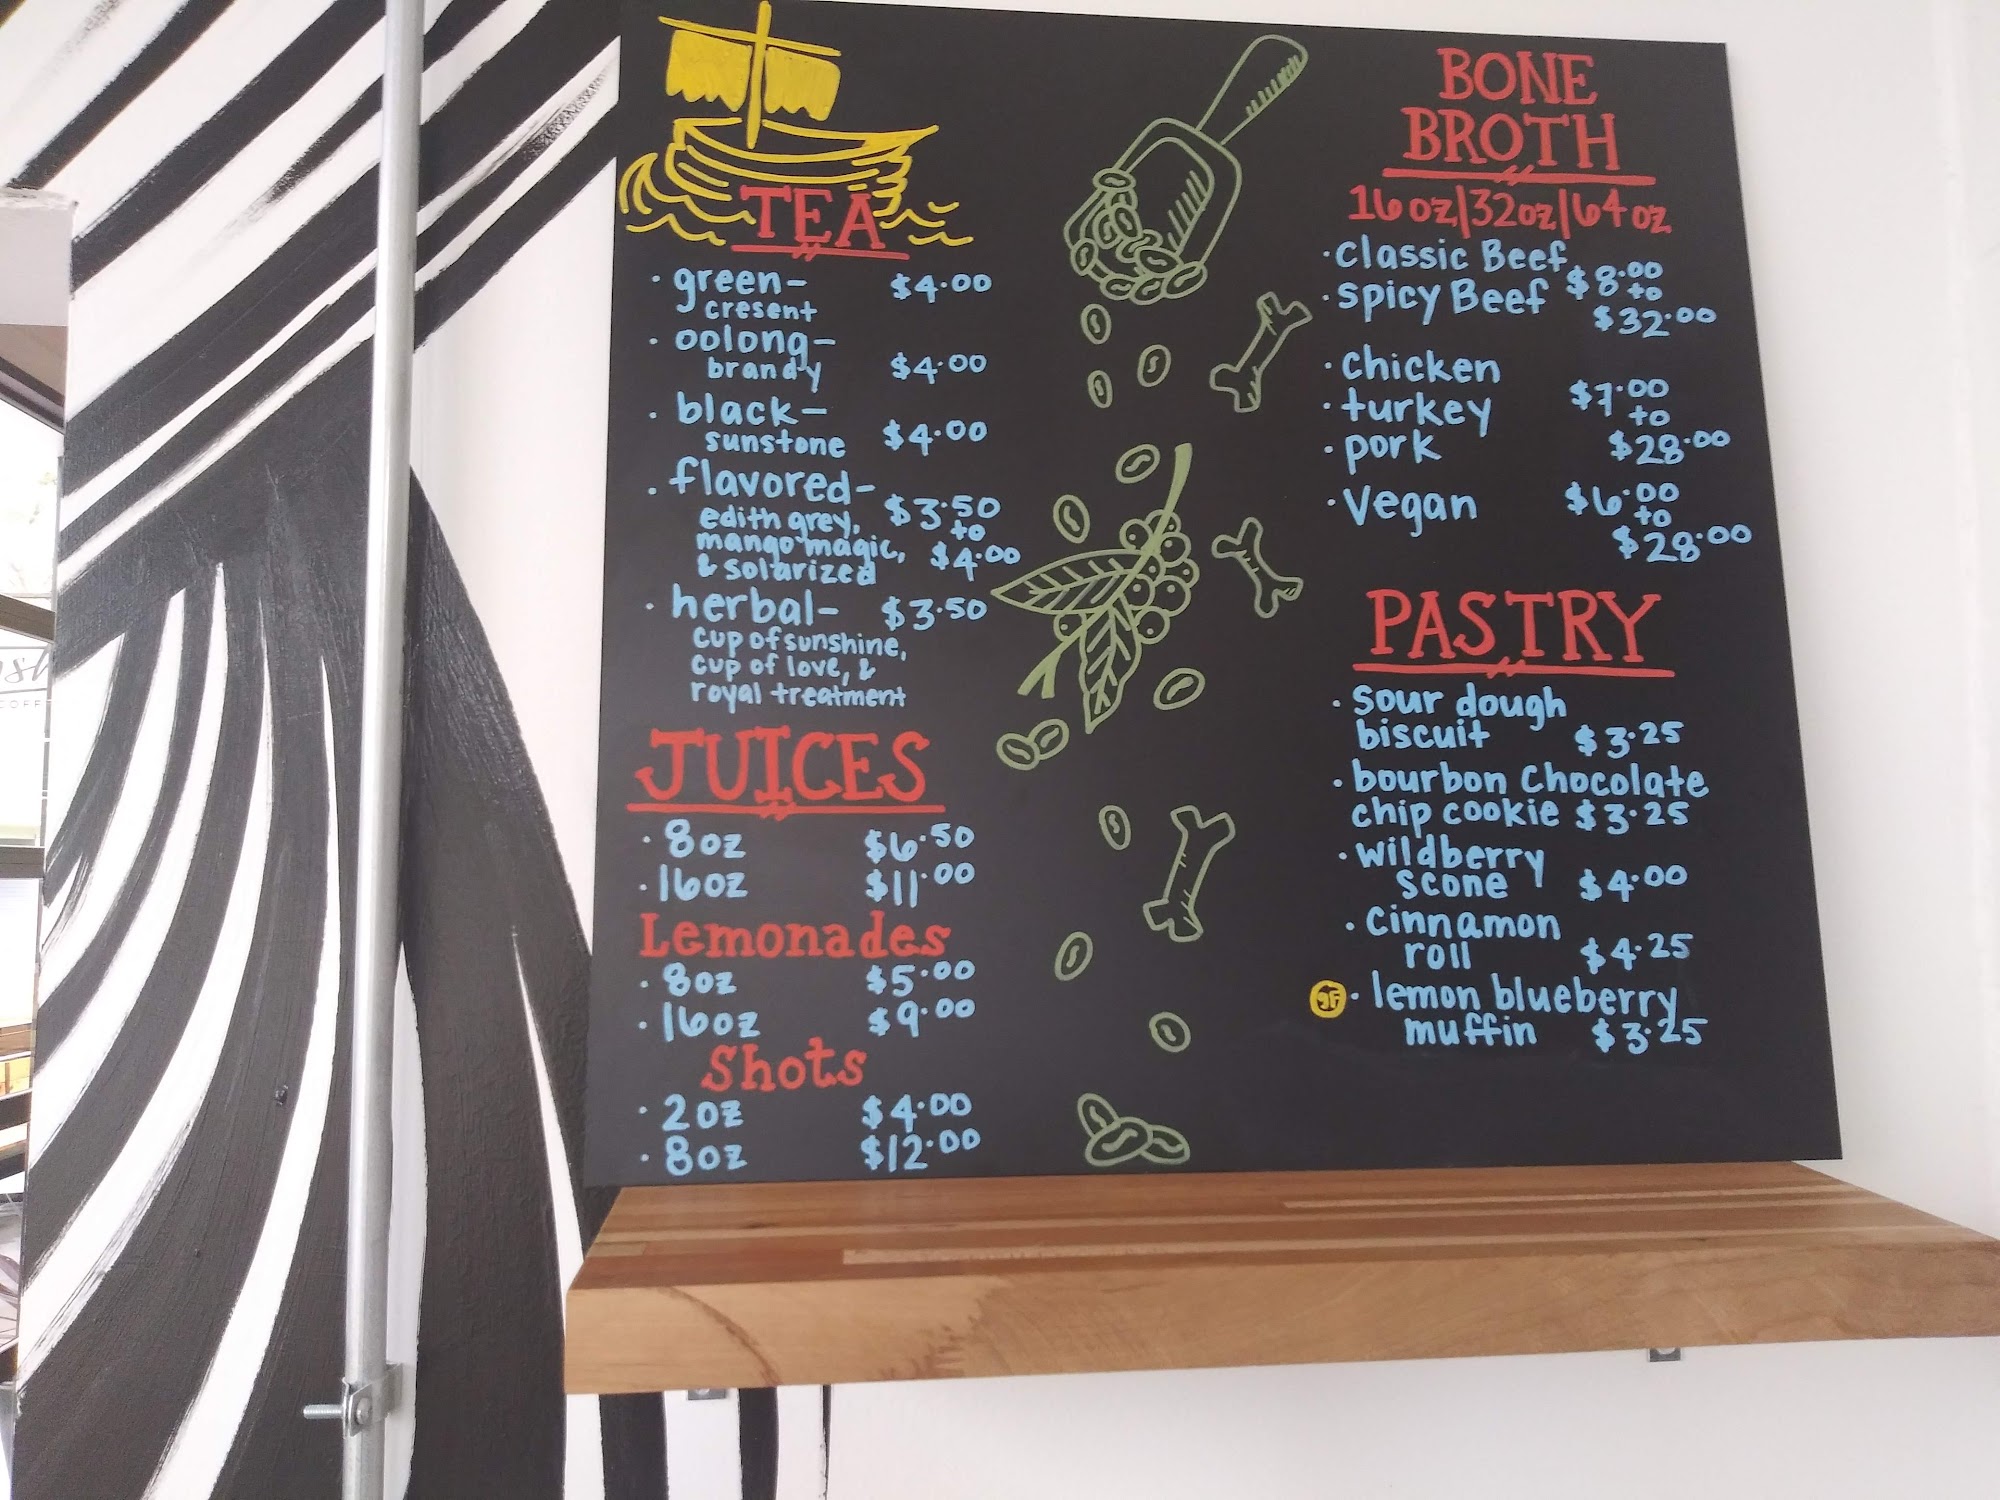 TEA
· green- $4.00
cresent
· oolong-
brandy $4.00
· black-
sunstone $4.00
· flavored- $3.50
edith grey, to
mango magic, $4.00
& solarized
· herbal- $3.50
cup of sunshine,
cup of love, &
royal treatment
JUICES
· 8oz $6.50
· 16oz $11.00
Lemonades
· 8oz $5.00
· 16oz $9.00
Shots
· 2oz $4.00
· 8oz $12.00
BONE
BROTH
16oz|32oz|64oz
· Classic Beef $8.00
· Spicy Beef to
$32.00
· Chicken $7.00
· turkey to
· pork $28.00
· Vegan $6.00
to
$28.00
PASTRY
· sour dough
biscuit $3.25
· bourbon Chocolate
chip cookie $3.25
· wildberry
scone $4.00
· cinnamon
roll $4.25
gF · lemon blueberry
muffin $3.25
COFF